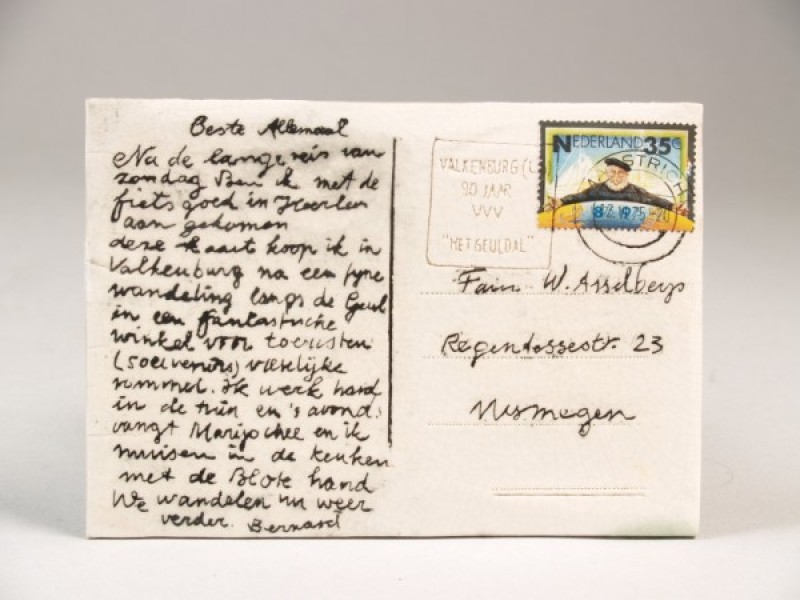 Beste Allemaal
Na de lange reis van
zondag Ben ik met de
fiets goed in Heerlen
aan gekomen
deze kaart koop ik in
Valkenburg na een fyne
wandeling langs de Geul
in een fantastische
winkel voor toeristen
(souvenirs) vreselijke
rommel. Ik werk hard
in de tuin en 's avonds
vangt Marijochee en ik
muisen in de keuken
met de Blote hand
We wandelen nu weer
verder. Bernard
VALKENBURG (L
90 JAAR
VVV
"HET GEULDAL"
NEDERLAND 35 C
STRICHT
Fam W. Asselbergs
Regentessestr. 23
Nijmegen